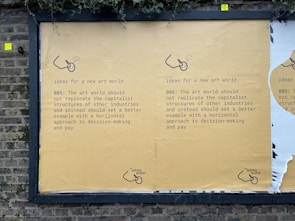 ideas for a new art world
005: The art world should
not replicate the capitalist
structures of other industries
and instead should set a better
example with a horizontal
approach to decision-making
and pay
ideas for a new art world
005: The art world should
not replicate the capitalist
structures of other industries
and instead should set a better
example with a horizontal
approach to decision-making
and pay